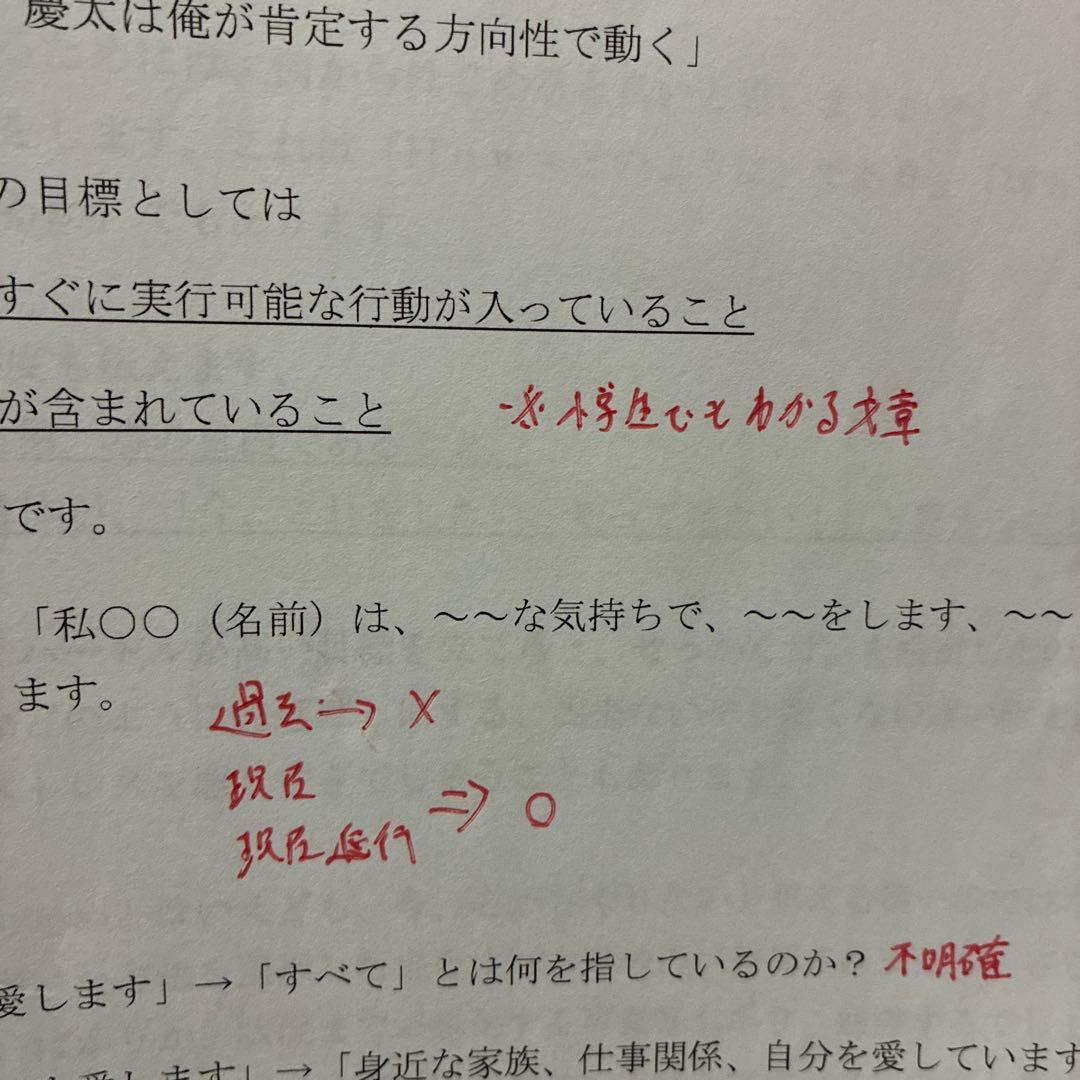 慶太は俺が肯定する方向性で動く」
の目標としては
すぐに実行可能な行動が入っていること
が含まれていること ※小学生でもわかる文章
です。
「私〇〇（名前）は、～～な気持ちで、～～をします、～～
ます。
過去→×
現在
現在進行 ⇒ ○
愛します」→「すべて」とは何を指しているのか？ 不明確
愛します」→「身近な家族、仕事関係、自分を愛しています